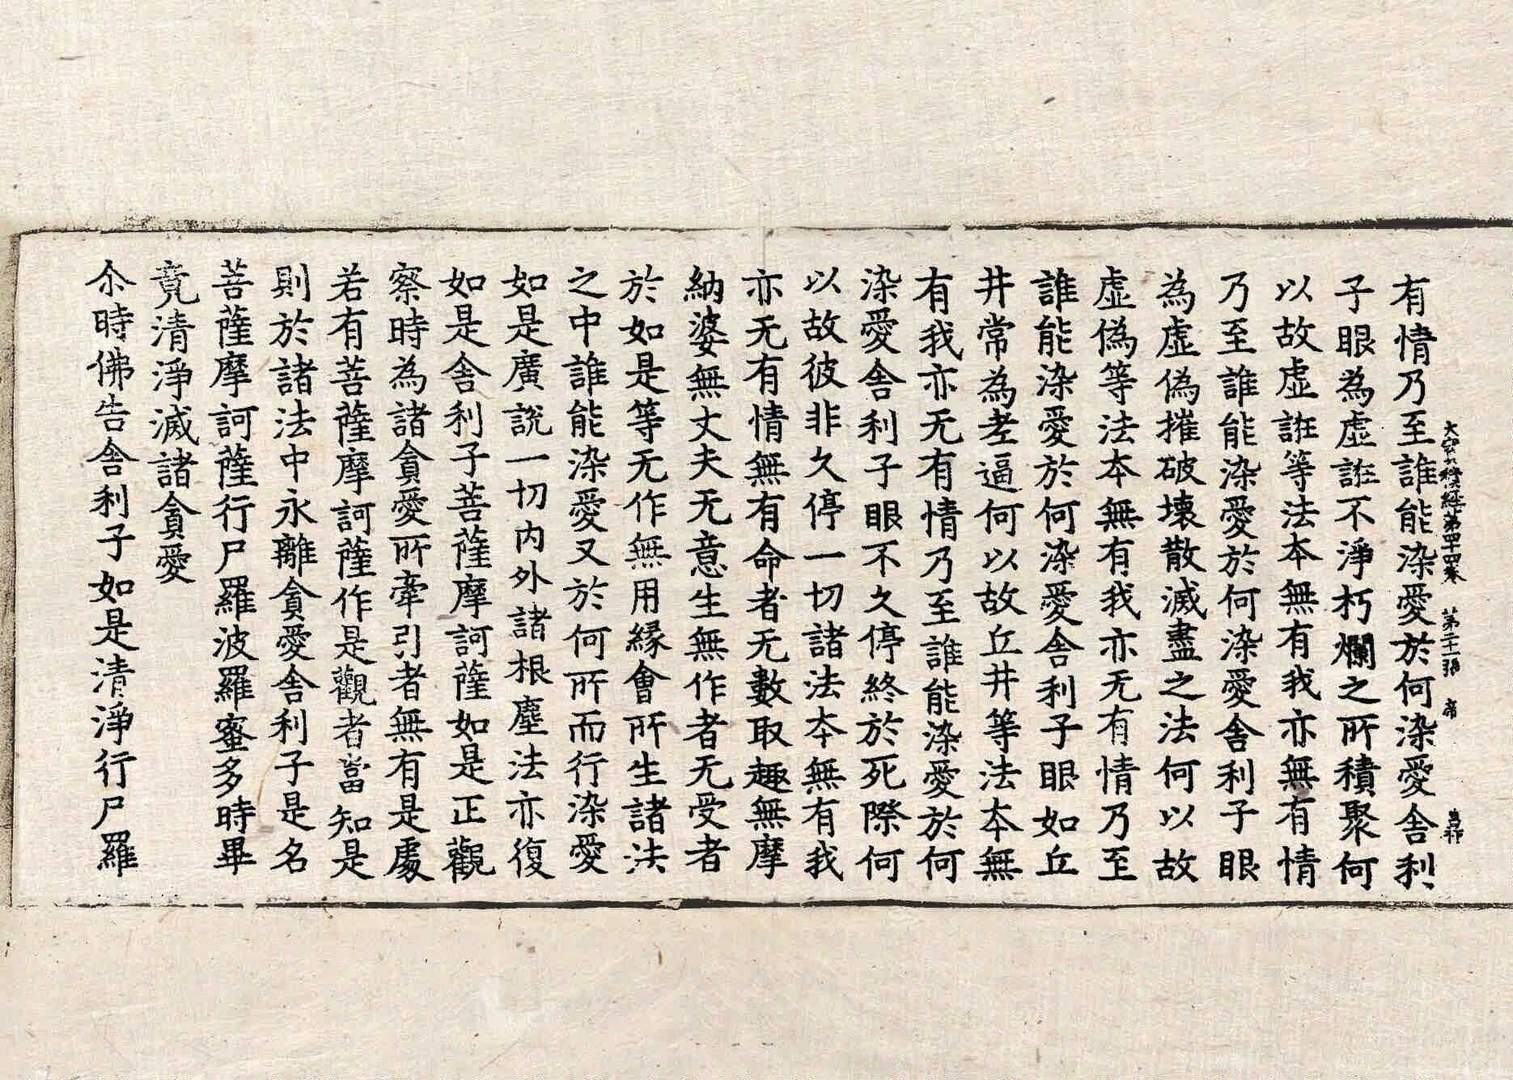 大寶積經第四十四卷　第二十一張　帝
有情乃至誰能染愛於何染愛舍利
子眼為虛誑不淨朽爛之所積聚何
以故虛誑等法本無有我亦無有情
乃至誰能染愛於何染愛舍利子眼
為虛偽摧破壞散滅盡之法何以故
虛偽等法本無有我亦无有情乃至
誰能染愛於何染愛舍利子眼如丘
井常為老逼何以故丘井等法本無
有我亦无有情乃至誰能染愛於何
染愛舍利子眼不久停終於死際何
以故彼非久停一切諸法本無有我
亦无有情無有命者无數取趣無摩
納婆無丈夫无意生無作者无受者
於如是等无作無用緣會所生諸法
之中誰能染愛又於何所而行染愛
如是廣說一切内外諸根塵法亦復
如是舍利子菩薩摩訶薩如是正觀
察時為諸貪愛所牽引者無有是處
若有菩薩摩訶薩作是觀者當知是
則於諸法中永離貪愛舍利子是名
菩薩摩訶薩行尸羅波羅蜜多時畢
竟清淨滅諸貪愛
尒時佛告舍利子如是清淨行尸羅